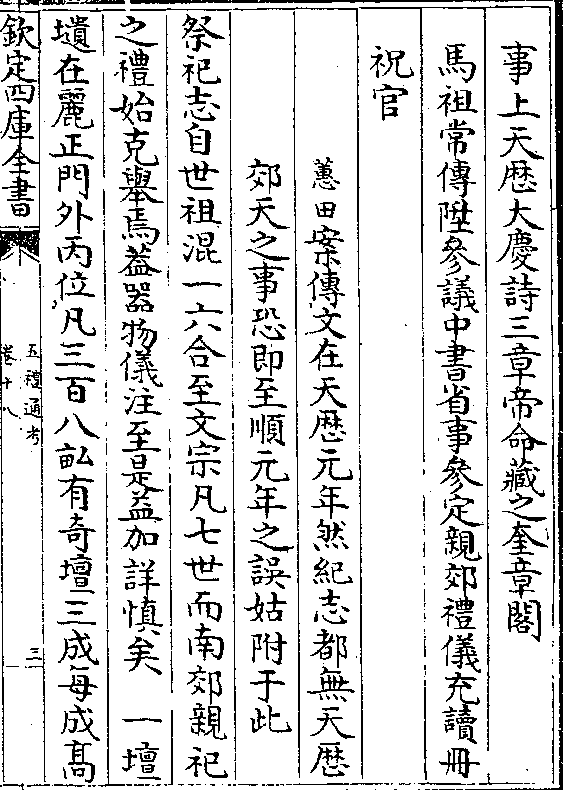 事上天厯大慶詩三章帝命藏之奎章閣
馬祖常傳陞參議中書省事參定親郊禮儀充讀冊
祝官
蕙田案傳文在天厯元年然紀志都無天厯
郊天之事恐即至順元年之誤姑附于此
祭祀志自世祖混一六合至文宗凡七世而南郊親祀
之禮始克舉焉葢器物儀注至是益加詳慎矣 一壇
壝在麗正門外丙位凡三百八畆有奇壇三成每成髙
欽定四庫全書
五禮通考
卷十八
三